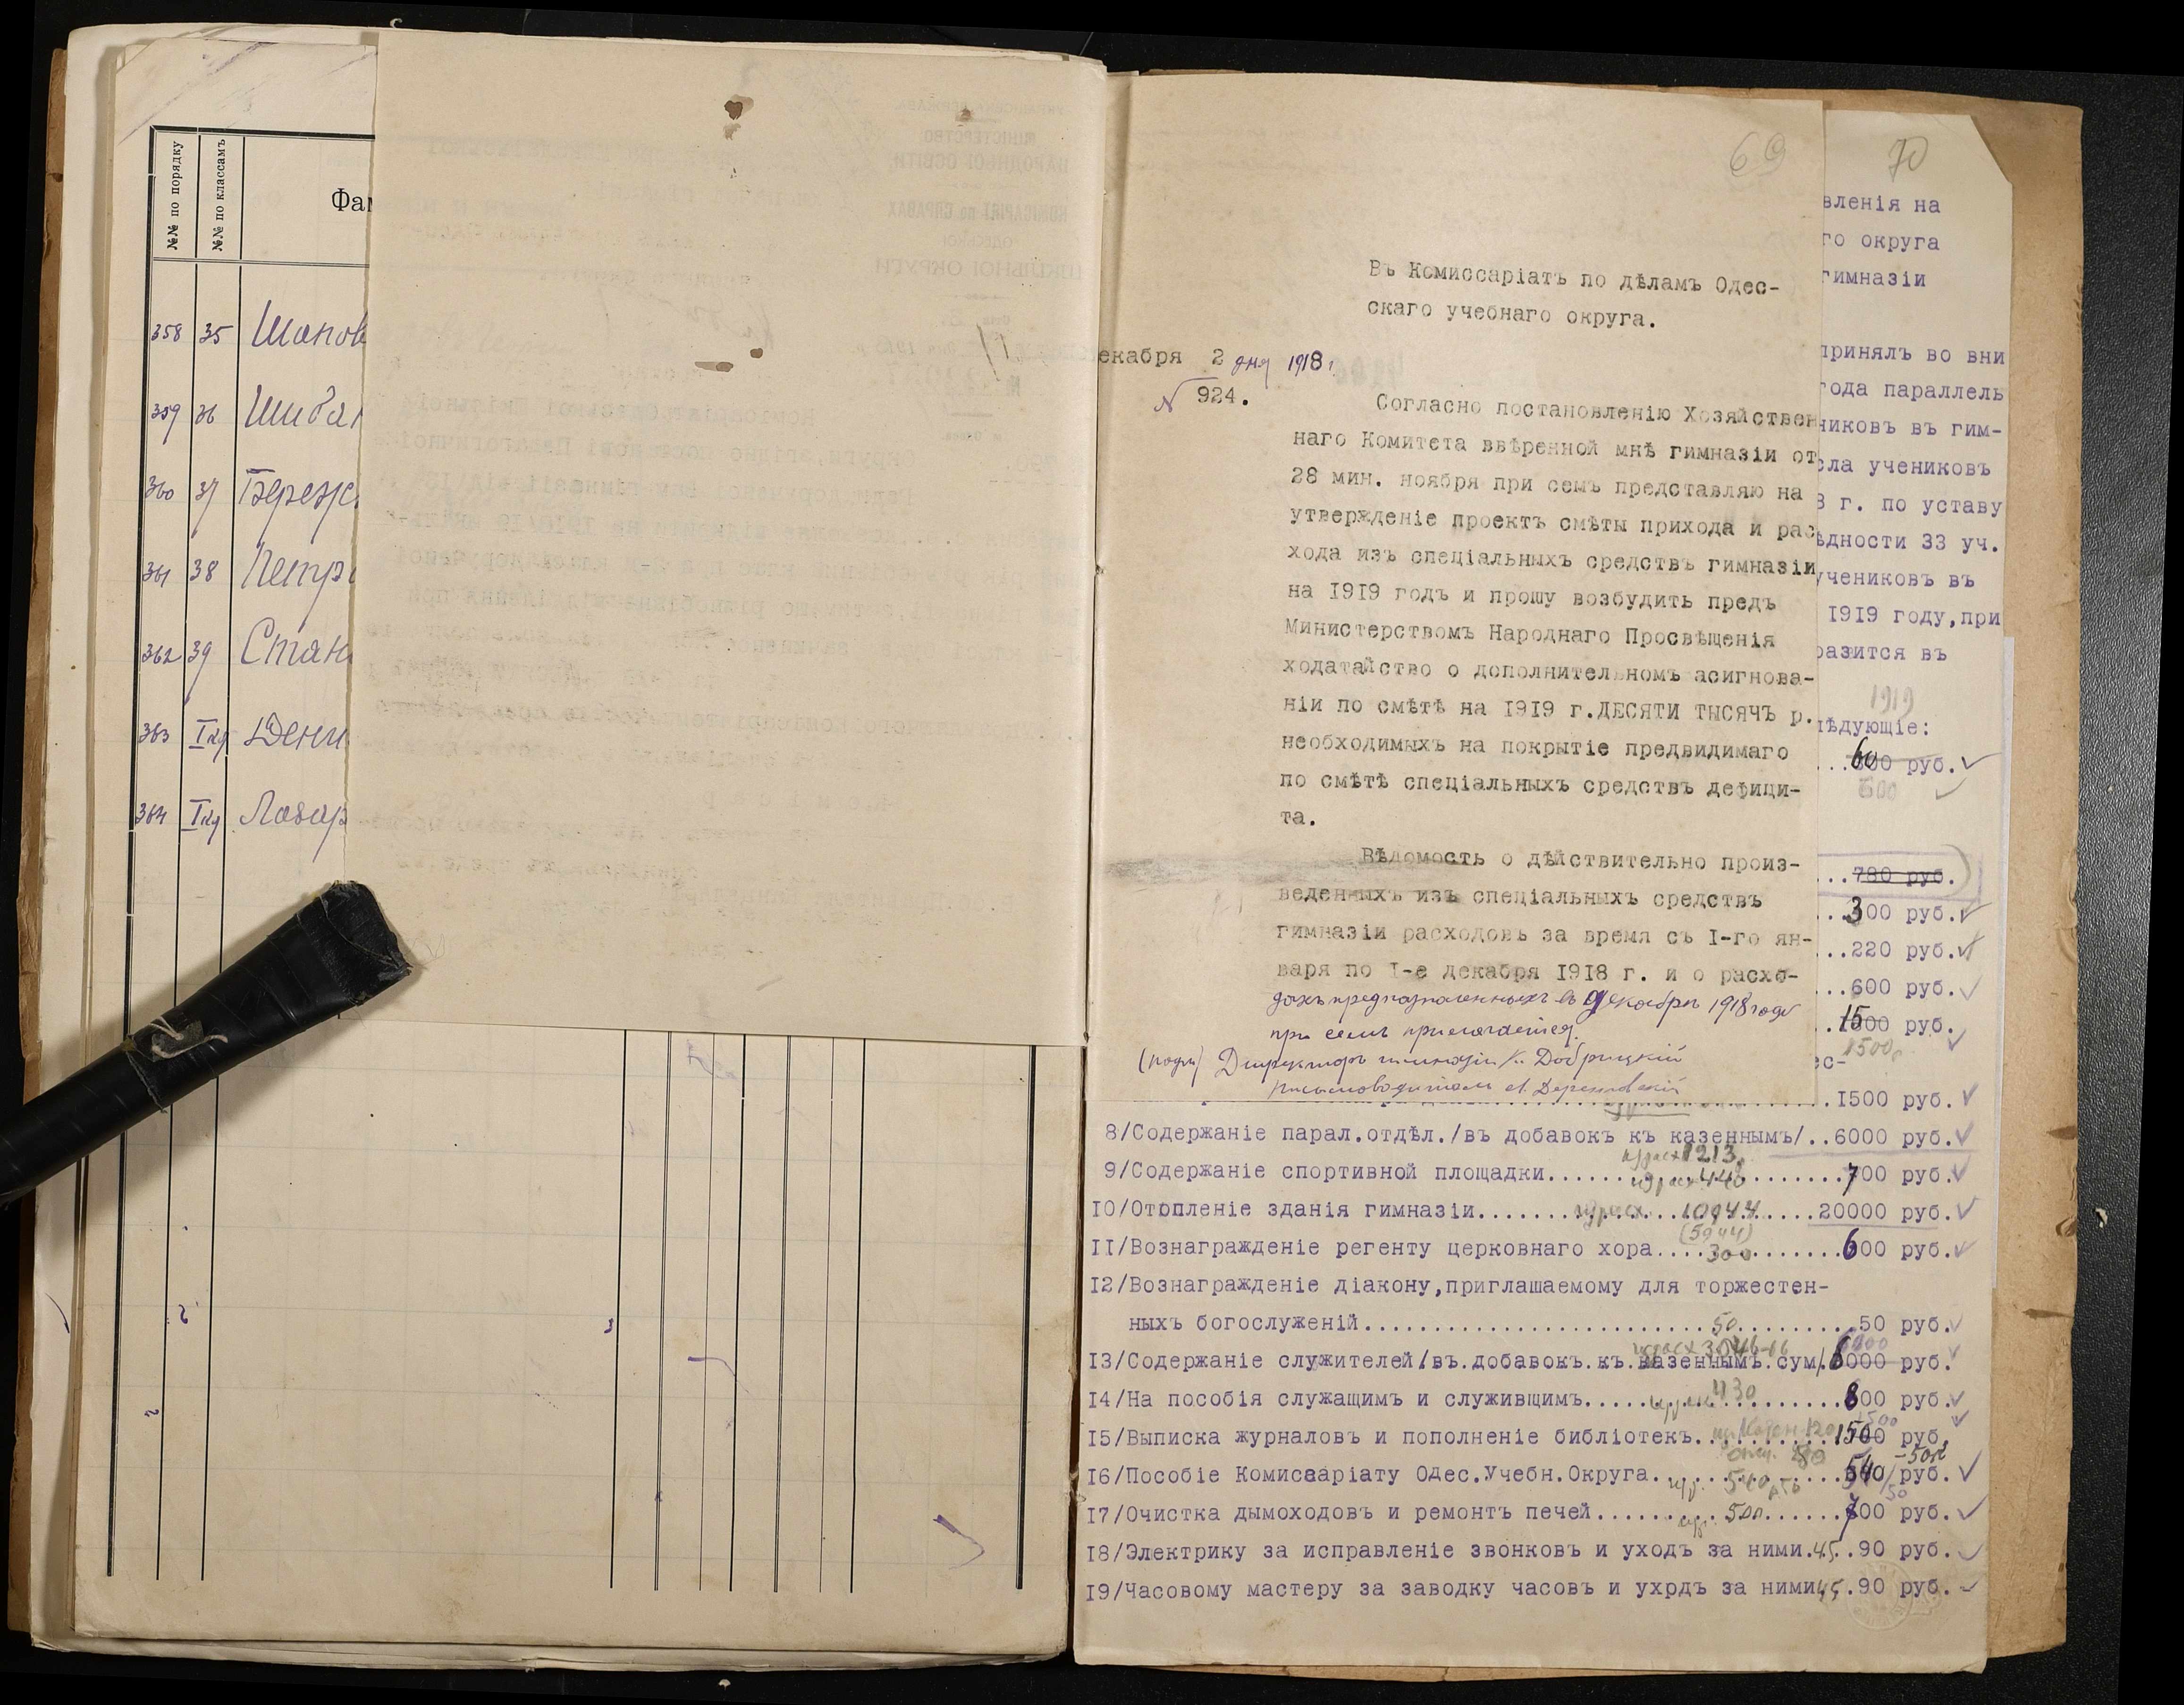 №№ по порядку
№№ по классамъ
Фам
358 35 Шапов
359 36 Шибан
360 37 Береж
361 38 Петр
362 39 Стан
363 Iкл Дени
364 Iкл Лазар
69
Въ Комиссаріатъ по дѣламъ Одес-
скаго учебнаго округа.
екабря 2 дня 1918 г.
N 924.
Согласно постановленію Хозяйствен
наго Комитета ввѣренной мнѣ гимназіи от
28 мин. ноября при семъ представляю на
утвержденіе проектъ смѣты прихода и рас
хода изъ спеціальныхъ средствъ гимназіи
на 1919 годъ и прошу возбудить предъ
Министерствомъ Народнаго Просвѣщенія
ходатайство о дополнительномъ асигнова-
ніи по смѣтѣ на 1919 г.ДЕСЯТИ ТЫСЯЧЪ р.
необходимыхъ на покрытіе предвидимаго
по смѣтѣ спеціальныхъ средствъ дефици-
та.
Вѣдомость о дѣйствительно произ-
веденныхъ изъ спеціальныхъ средствъ
гимназіи расходовъ за время съ I-го ян-
варя по I-е декабря 1918 г. и о расхо-
дахъ предназначенныхъ въ декабрѣ 1918 году
при семъ прилагается.
(подп) Директоръ гимназіи К. Добрицкій
Письмоводитель
70
вленія на
го округа
гимназіи
принялъ во вни
года параллель
никовъ въ гим-
сла учениковъ
8 г. по уставу
ѣдности 33 уч.
учениковъ въ
1919 году,при
разится въ
1919
лѣдующіе:
...600 руб.
600
...780 руб.
...300 руб.
...220 руб.
...600 руб.
..1500 руб.
1500 р
ес-
..1500 руб.
8/Содержаніе парал.отдѣл./въ добавокъ къ казеннымъ/..6000 руб.
1213
9/Содержаніе спортивной площадки.......440.......700 руб.
10/Отопленіе зданія гимназіи.......10944.....20000 руб.
(5944)
11/Вознагражденіе регенту церковнаго хора....300.......600 руб.
12/Вознагражденіе діакону,приглашаемому для торжестен-
ныхъ богослуженій.......50.......50 руб.
13/Содержаніе служителей/въ.добавокъ.къ.казеннымъ.сум/.6000 руб.
14/На пособія служащимъ и служившимъ.......430.......800 руб.
15/Выписка журналовъ и пополненіе библіотекъ.......1500 руб.
16/Пособіе Комиссаріату Одес.Учебн.Округа.......540 руб.
17/Очистка дымоходовъ и ремонтъ печей.......500......700 руб.
18/Электрику за исправленіе звонковъ и уходъ за ними.45..90 руб.
19/Часовому мастеру за заводку часовъ и ухрдъ за ними45.90 руб.